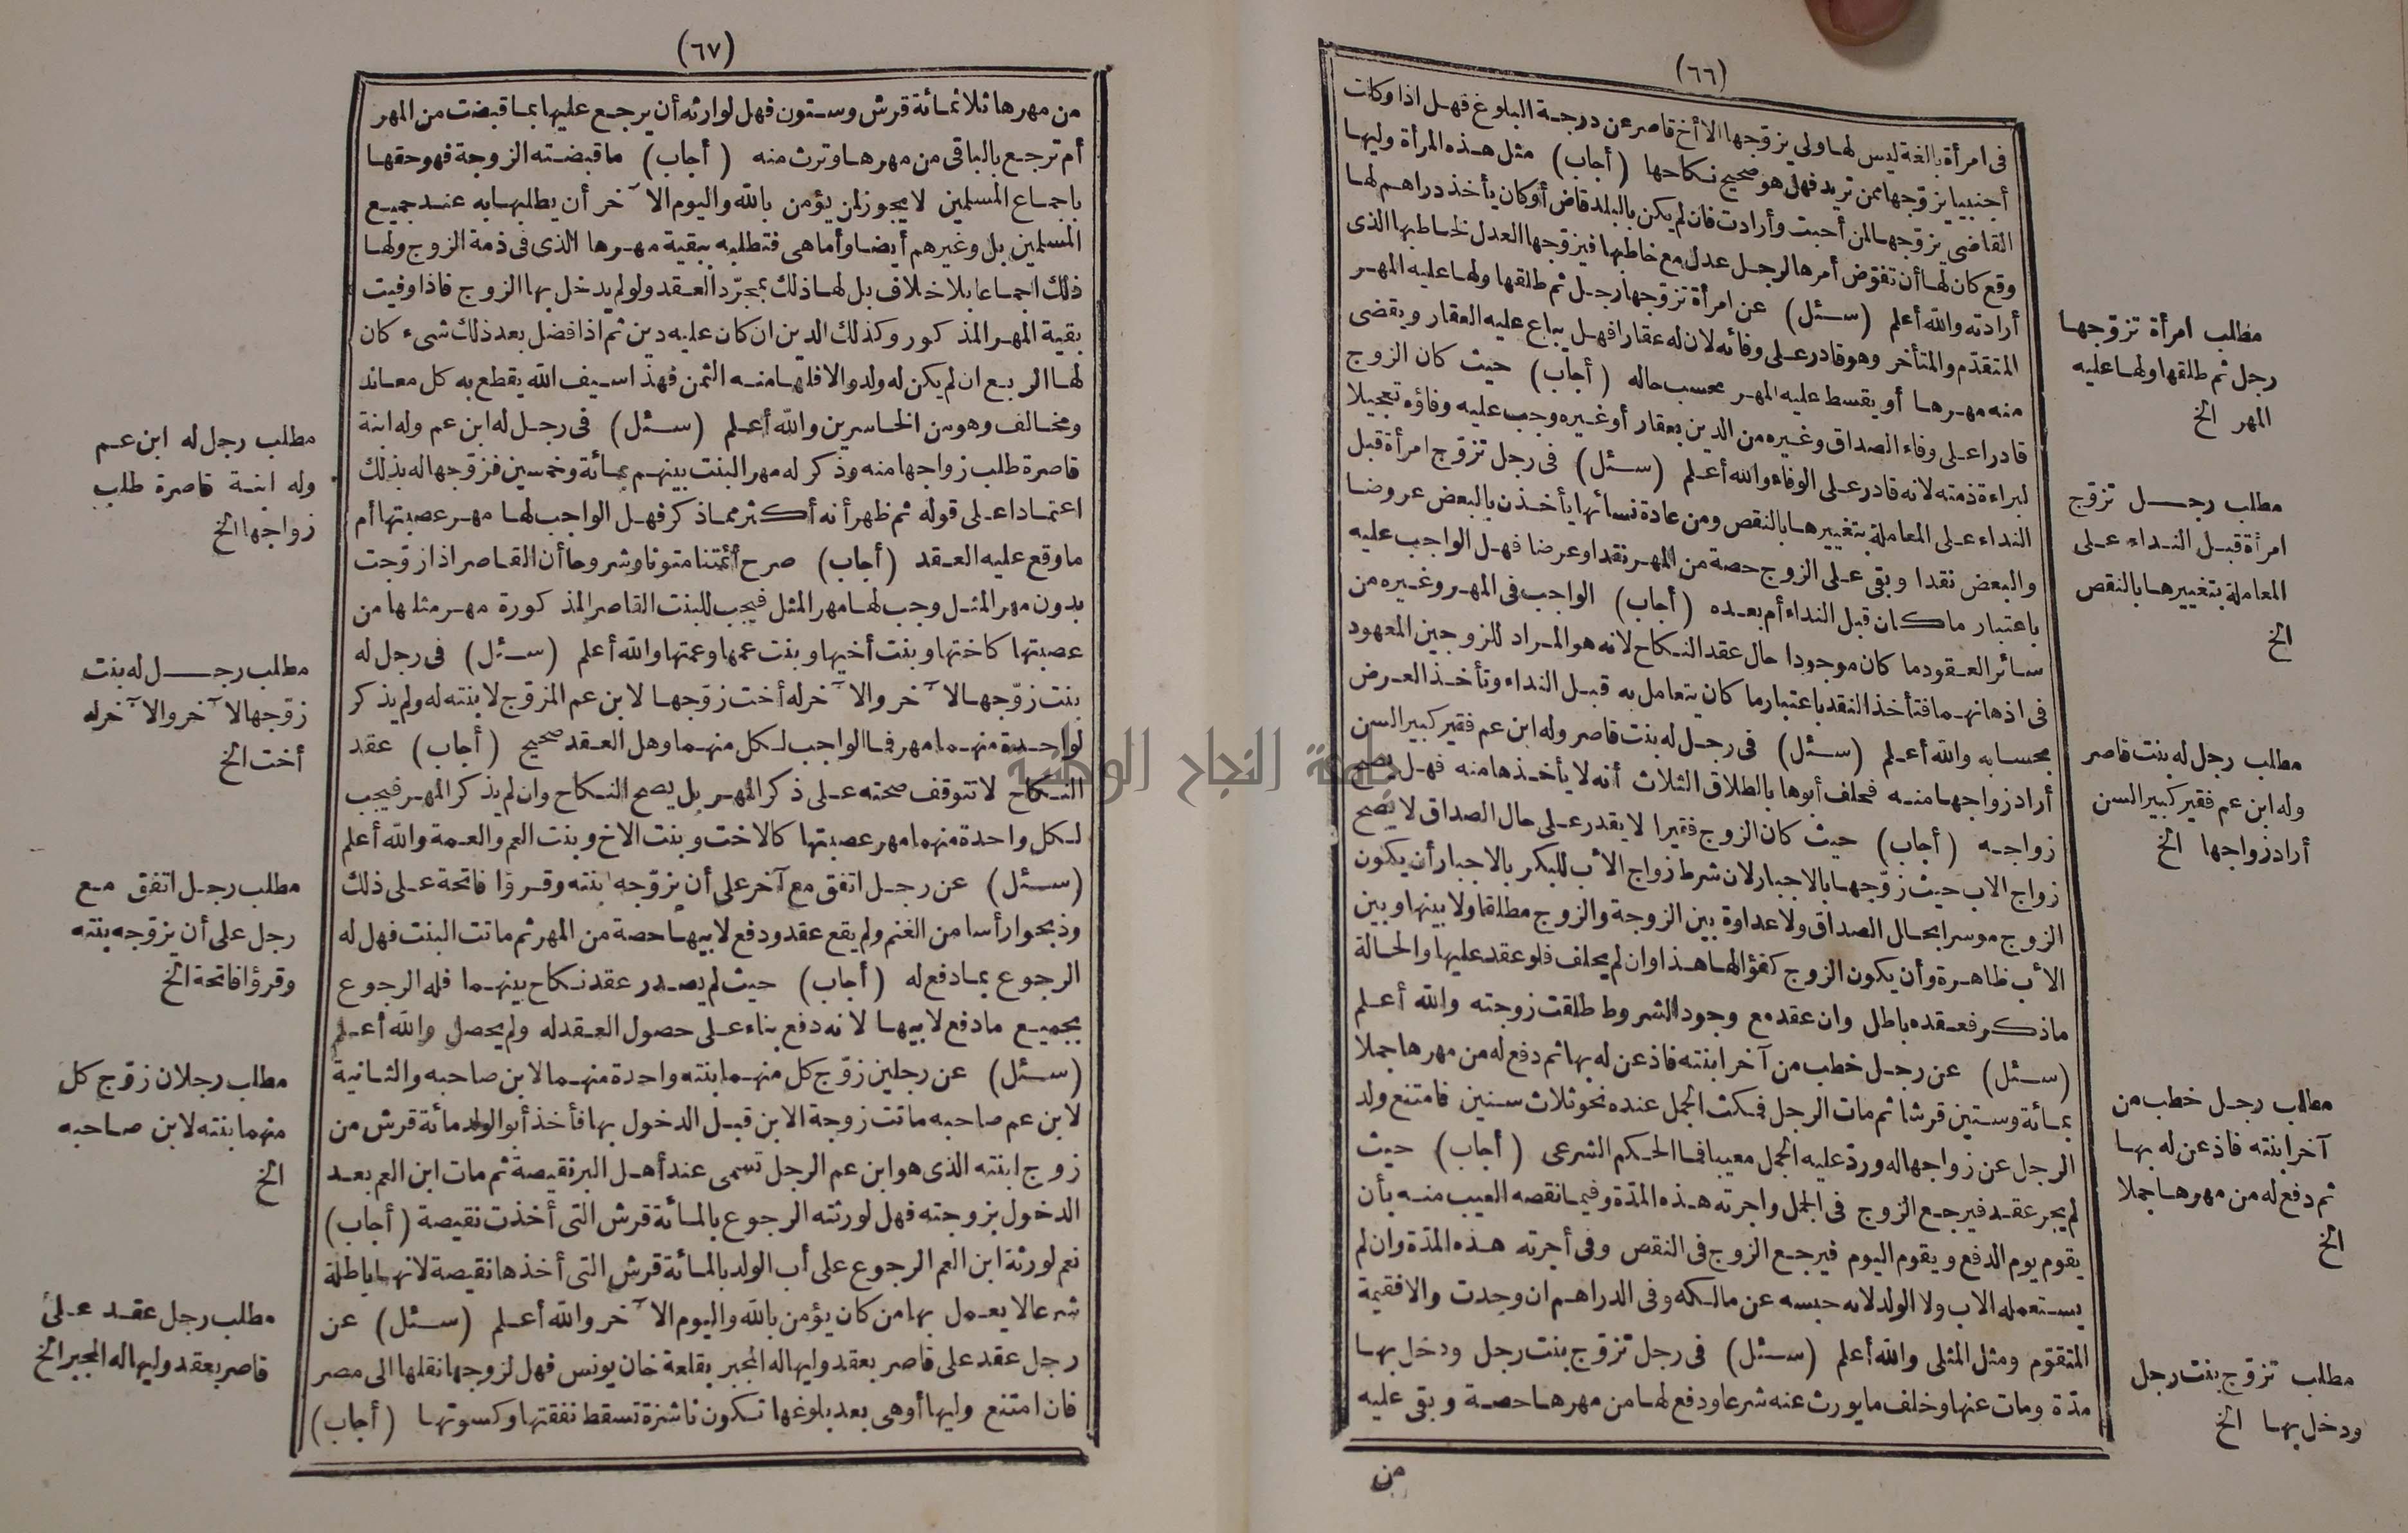 (٦٦)
فى امرأة بالغة ليس لها ولي يزوّجها الا أخ قاصر عن درجة البلوغ فهل اذا وكلت
أجنبيا يزوّجها ممن تريد فهل هو صحيح نكاحها (أجاب) مثل هذه المرأة وليها
القاضى يزوّجها لمن أحبت وأرادت فان لم يكن بالبلد قاض أو كان يأخذ دراهم لها
وقع كان لها أن تفوّض أمرها لرجل عدل مع خاطبها فيزوّجها العدل لخاطبها الذى
أرادته والله أعلم (سئل) عن امرأة تزوّجها رجل ثم طلقها ولها عليه المهر
المتقدّم والمتأخر وهو قادر على وفائه لان له عقارا فهل يباع عليه العقار ويقضى
منه مهرها أو يقسط عليه المهر بحسب حاله (أجاب) حيث كان الزوج
قادرا على وفاء الصداق وغيره من الدين بعقار أو غيره وجب عليه وفاؤه تعجيلا
لبراءة ذمته لانه قادر على الوفاء والله أعلم (سئل) فى رجل تزوّج امرأة قبل
النداء على المعاملة بتغييرها بالنقص ومن عادة نسائها يأخذن بالبعض عروضا
والبعض نقدا وبقى على الزوج حصة من المهر نقدا وعرضا فهل الواجب عليه
باعتبار ما كان قبل النداء أم بعده (أجاب) الواجب فى المهر وغيره من
سائر العقود ما كان موجودا حال عقد النكاح لانه هو المراد للزوجين المعهود
فى اذهانهما فتأخذ النقد باعتبار ما كان يتعامل به قبل النداء وتأخذ العرض
بحسابه والله أعلم (سئل) فى رجل له بنت قاصر وله ابن عم فقير كبير السن
أراد زواجها منه فحلف أبوها بالطلاق الثلاث أنه لا يأخذها منه فهل يصح
زواجه (أجاب) حيث كان الزوج فقيرا لا يقدر على حال الصداق لا يصح
زواج الاب حيث زوّجها بالاجبار لان شرط زواج الأب للبكر بالاجبار أن يكون
الزوج موسرا بحال الصداق ولا عداوة بين الزوجة والزوج مطلقا ولا بينها وبين
الأب ظاهرة وأن يكون الزوج كفؤا لها هذا وان لم يحلف فلو عقد عليها والحالة
ما ذكر فعقده باطل وان عقد مع وجود الشروط طلقت زوجته والله أعلم
(سئل) عن رجل خطب من آخر ابنته فاذعن له بها ثم دفع له من مهرها جملا
بمائة وستين قرشا ثم مات الرجل فمكث الجمل عنده نحو ثلاث سنين فامتنع ولد
الرجل عن زواجها له وردّ عليه الجمل معيبا فما الحكم الشرعى (أجاب) حيث
لم يجر عقد فيرجع الزوج فى الجمل واجرته هذه المدّة وفيما نقصه العيب منه بأن
يقوم يوم الدفع ويقوم اليوم فيرجع الزوج فى النقص وفى أجرته هذه المدّة وان لم
يستعمله الاب ولا الولد لانه حبسه عن مالكه وفى الدراهم ان وجدت والا فقيمة
المتقوّم ومثل المثلى والله أعلم (سئل) فى رجل تزوّج بنت رجل ودخل بها
مدّة ومات عنها وخلف ما يورث عنه شرعا ودفع لها من مهرها حصة وبقى عليه
من
مطلب امرأة تزوّجها
رجل ثم طلقها ولها عليه
المهر الخ
مطلب رجل تزوّج
امرأة قبل النداء على
المعاملة بتغييرها بالنقص
الخ
مطلب رجل له بنت قاصر
وله ابن عم فقير كبير السن
أراد زواجها الخ
مطلب رجل خطب من
آخر ابنته فاذعن له بها
ثم دفع له من مهرها جملا
الخ
مطلب تزوّج بنت رجل
ودخل بها الخ
(٦٧)
من مهرها ثلاثمائة قرش وستون فهل لوارثه أن يرجع عليها بما قبضت من المهر
أم ترجع بالباقى من مهرها وترث منه (أجاب) ما قبضته الزوجة فهو حقها
باجماع المسلمين لا يجوز لمن يؤمن بالله واليوم الآخر أن يطلبها به عند جميع
المسلمين بل وغيرهم أيضا وأما هى فتطلبه ببقية مهرها الذى فى ذمة الزوج ولها
ذلك اجماعا بلا خلاف بل لها ذلك بمجرّد العقد ولو لم يدخل بها الزوج فاذا وفيت
بقية المهر المذكور وكذلك الدين ان كان عليه دين ثم اذا فضل بعد ذلك شىء كان
لها الربع ان لم يكن له ولد والا فلها منه الثمن فهذا سيف الله يقطع به كل معاند
ومخالف وهو من الخاسرين والله أعلم (سئل) فى رجل له ابن عم وله ابنة
قاصرة طلب زواجها منه وذكر له مهر البنت بينهم بمائة وخمسين فزوّجها له بذلك
اعتمادا على قوله ثم ظهر أنه أكثر مما ذكر فهل الواجب لها مهر عصبتها أم
ما وقع عليه العقد (أجاب) صرح أئمتنا متونا وشروحا أن القاصر اذا زوّجت
بدون مهر المثل وجب لها مهر المثل فيجب للبنت القاصر المذكورة مهر مثلها من
عصبتها كاختها وبنت أخيها وبنت عمها وعمتها والله أعلم (سئل) فى رجل له
بنت زوّجها لآخر والآخر له أخت زوّجها لابن عم المزوّج لابنته له ولم يذكر
لواحدة منهما مهر فما الواجب لكل منهما وهل العقد صحيح (أجاب) عقد
النكاح لا تتوقف صحته على ذكر المهر بل يصح النكاح وان لم يذكر المهر فيجب
لكل واحدة منهما مهر عصبتها كالاخت وبنت الاخ وبنت العم والعمة والله أعلم
(سئل) عن رجل اتفق مع آخر على أن يزوّجه ابنته وقرؤا فاتحة على ذلك
وذبحوا رأسا من الغنم ولم يقع عقد ودفع لابيها حصة من المهر ثم ماتت البنت فهل له
الرجوع بما دفع له (أجاب) حيث لم يصدر عقد نكاح بينهما فله الرجوع
بجميع ما دفع لابيها لانه دفع بناء على حصول العقد له ولم يحصل والله أعلم
(سئل) عن رجلين زوّج كل منهما ابنته واحدة منهما لابن صاحبه والثانية
لابن عم صاحبه ماتت زوجة الابن قبل الدخول بها فأخذ أبو الولد مائة قرش من
زوج ابنته الذى هو ابن عم الرجل تسمى عند أهل البر نقيصة ثم مات ابن العم بعد
الدخول بزوجته فهل لورثته الرجوع بالمائة قرش التى أخذت نقيصة (أجاب)
نعم لورثة ابن العم الرجوع على أب الولد بالمائة قرش التى أخذها نقيصة لانها باطلة
شرعا لا يعمل بها من كان يؤمن بالله واليوم الآخر والله أعلم (سئل) عن
رجل عقد على قاصر بعقد وليها له المجبر بقلعة خان يونس فهل لزوجها نقلها الى مصر
فان امتنع وليها أو هى بعد بلوغها تكون ناشزة تسقط نفقتها وكسوتها (أجاب)
مطلب رجل له ابن عم
وله ابنة قاصرة طلب
زواجها الخ
مطلب رجل له بنت
زوّجها لآخر والآخر له
أخت الخ
مطلب رجل اتفق مع
رجل على أن يزوّجه بنته
وقرؤا فاتحة الخ
مطلب رجلان زوّج كل
منهما بنته لابن صاحبه
الخ
مطلب رجل عقد على
قاصر بعقد وليها له المجبر الخ
جامعة النجاح الوطنية